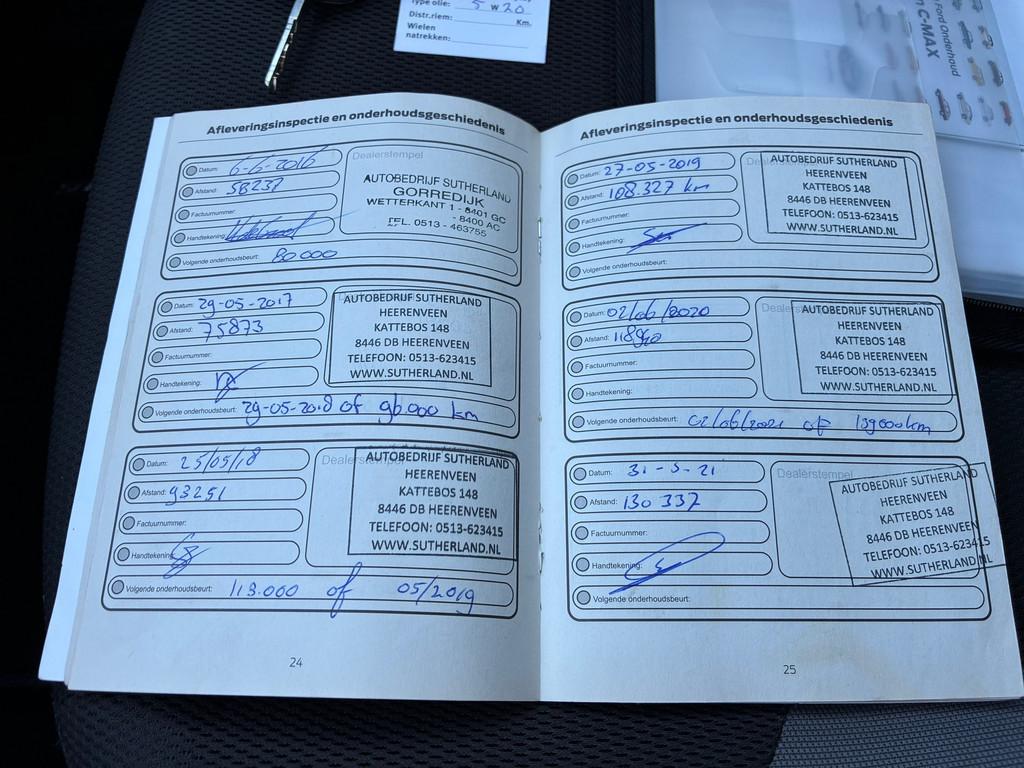 Type olie: 5 W 20
Distr.riem: Km.
Wielen
natrekken:
Ford Onderhoud
C-MAX
Afleveringsinspectie en onderhoudsgeschiedenis
Datum: 6-6-2016
Afstand: 58237
Factuurnummer:
Handtekening:
Volgende onderhoudsbeurt: 80000
Dealerstempel
AUTOBEDRIJF SUTHERLAND
GORREDIJK
WETTERKANT 1 - 8401 GC
- 8400 AC
TEL. 0513 - 463755
Datum: 29-05-2017
Afstand: 75873
Factuurnummer:
Handtekening:
Volgende onderhoudsbeurt: 29-05-2018 of 96.000 km
AUTOBEDRIJF SUTHERLAND
HEERENVEEN
KATTEBOS 148
8446 DB HEERENVEEN
TELEFOON: 0513-623415
WWW.SUTHERLAND.NL
Datum: 25/05/18
Afstand: 93251
Factuurnummer:
Handtekening:
Volgende onderhoudsbeurt: 113.000 of 05/2019
Dealerstempel
AUTOBEDRIJF SUTHERLAND
HEERENVEEN
KATTEBOS 148
8446 DB HEERENVEEN
TELEFOON: 0513-623415
WWW.SUTHERLAND.NL
24
Afleveringsinspectie en onderhoudsgeschiedenis
Datum: 27-05-2019
Afstand: 108.327 km
Factuurnummer:
Handtekening:
Volgende onderhoudsbeurt:
AUTOBEDRIJF SUTHERLAND
HEERENVEEN
KATTEBOS 148
8446 DB HEERENVEEN
TELEFOON: 0513-623415
WWW.SUTHERLAND.NL
Datum: 02/06/2020
Afstand:
Factuurnummer:
Handtekening:
Volgende onderhoudsbeurt: 02/06/2021 of 139000km
AUTOBEDRIJF SUTHERLAND
HEERENVEEN
KATTEBOS 148
8446 DB HEERENVEEN
TELEFOON: 0513-623415
WWW.SUTHERLAND.NL
Datum: 31-5-21
Afstand: 130 337
Factuurnummer:
Handtekening:
Volgende onderhoudsbeurt:
Dealerstempel
AUTOBEDRIJF SUTHERLAND
HEERENVEEN
KATTEBOS 148
8446 DB HEERENVEEN
TELEFOON: 0513-623415
WWW.SUTHERLAND.NL
25